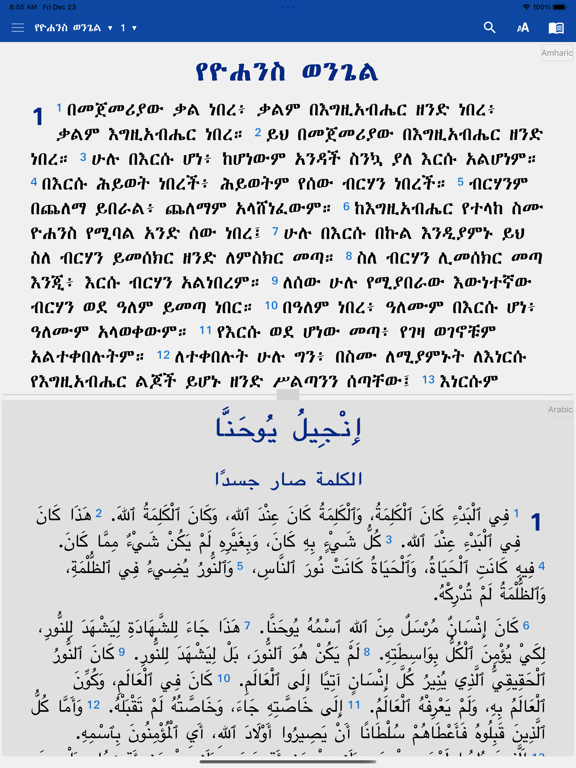 8:55 AM Fri Dec 23
100%
የዮሐንስ ወንጌል 1
AA
Amharic
የዮሐንስ ወንጌል
1 1 በመጀመሪያው ቃል ነበረ፥ ቃልም በእግዚአብሔር ዘንድ ነበረ፥
ቃልም እግዚአብሔር ነበረ። 2 ይህ በመጀመሪያው በእግዚአብሔር ዘንድ
ነበረ። 3 ሁሉ በእርሱ ሆነ፥ ከሆነውም አንዳች ስንኳ ያለ እርሱ አልሆነም።
4 በእርሱ ሕይወት ነበረች፥ ሕይወትም የሰው ብርሃን ነበረች። 5 ብርሃንም
በጨለማ ይበራል፥ ጨለማም አላሸነፈውም። 6 ከእግዚአብሔር የተላከ ስሙ
ዮሐንስ የሚባል አንድ ሰው ነበረ፤ 7 ሁሉ በእርሱ በኩል እንዲያምኑ ይህ
ስለ ብርሃን ይመሰክር ዘንድ ለምስክር መጣ። 8 ስለ ብርሃን ሊመሰክር መጣ
እንጂ፥ እርሱ ብርሃን አልነበረም። 9 ለሰው ሁሉ የሚያበራው እውነተኛው
ብርሃን ወደ ዓለም ይመጣ ነበር። 10 በዓለም ነበረ፥ ዓለሙም በእርሱ ሆነ፥
ዓለሙም አላወቀውም። 11 የእርሱ ወደ ሆነው መጣ፥ የገዛ ወገኖቹም
አልተቀበሉትም። 12 ለተቀበሉት ሁሉ ግን፥ በስሙ ለሚያምኑት ለእነርሱ
የእግዚአብሔር ልጆች ይሆኑ ዘንድ ሥልጣንን ሰጣቸው፤ 13 እነርሱም
Arabic
إِنْجِيلُ يُوحَنَّا
الكلمة صار جسدًا
1 1 فِي ٱلْبَدْءِ كَانَ ٱلْكَلِمَةُ، وَٱلْكَلِمَةُ كَانَ عِنْدَ ٱللهِ، وَكَانَ ٱلْكَلِمَةُ ٱللهَ. 2 هَذَا كَانَ
فِي ٱلْبَدْءِ عِنْدَ ٱللهِ. 3 كُلُّ شَيْءٍ بِهِ كَانَ، وَبِغَيْرِهِ لَمْ يَكُنْ شَيْءٌ مِمَّا كَانَ.
4 فِيهِ كَانَتِ ٱلْحَيَاةُ، وَٱلْحَيَاةُ كَانَتْ نُورَ ٱلنَّاسِ، 5 وَٱلنُّورُ يُضِيءُ فِي ٱلظُّلْمَةِ،
وَٱلظُّلْمَةُ لَمْ تُدْرِكْهُ.
6 كَانَ إِنْسَانٌ مُرْسَلٌ مِنَ ٱللهِ ٱسْمُهُ يُوحَنَّا. 7 هَذَا جَاءَ لِلشَّهَادَةِ لِيَشْهَدَ لِلنُّورِ،
لِكَيْ يُؤْمِنَ ٱلْكُلُّ بِوَاسِطَتِهِ. 8 لَمْ يَكُنْ هُوَ ٱلنُّورَ، بَلْ لِيَشْهَدَ لِلنُّورِ. 9 كَانَ ٱلنُّورُ
ٱلْحَقِيقِيُّ ٱلَّذِي يُنِيرُ كُلَّ إِنْسَانٍ آتِيًا إِلَى ٱلْعَالَمِ. 10 كَانَ فِي ٱلْعَالَمِ، وَكُوِّنَ
ٱلْعَالَمُ بِهِ، وَلَمْ يَعْرِفْهُ ٱلْعَالَمُ. 11 إِلَى خَاصَّتِهِ جَاءَ، وَخَاصَّتُهُ لَمْ تَقْبَلْهُ. 12 وَأَمَّا كُلُّ
ٱلَّذِينَ قَبِلُوهُ فَأَعْطَاهُمْ سُلْطَانًا أَنْ يَصِيرُوا أَوْلَادَ ٱللهِ، أَيِ ٱلْمُؤْمِنُونَ بِٱسْمِهِ.